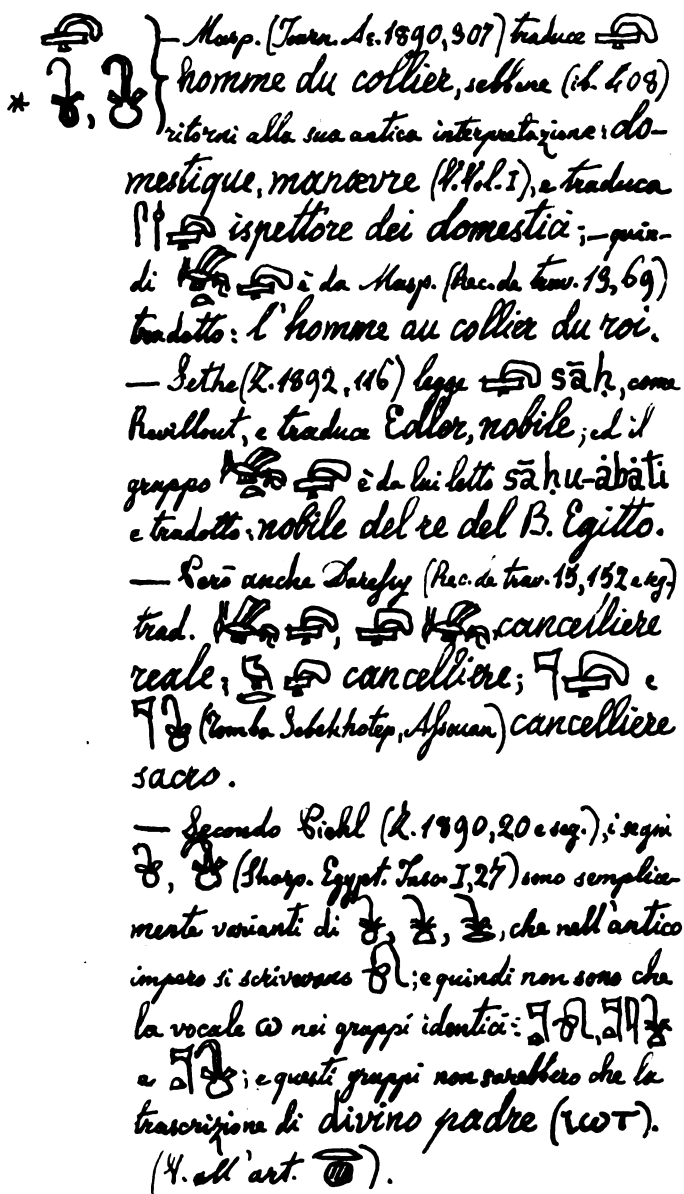 — Masp. (Journ. As. 1890, 307) traduce
* , homme du collier, sebbene (ib. 408)
ritorni alla sua antica interpretazione: do-
mestique, manœvre (V. Vol. I), e traduca
ispettore dei domestici; — quin-
di è da Masp. (Rec. de trav. 13, 69)
tradotto: l'homme au collier du roi.
— Sethe (Z. 1892, 116) legge sāḥ, come
Revillout, e traduce Edler, nobile; ed il
gruppo è da lui letto sāḥu-ȧbȧti
e tradotto: nobile del re del B. Egitto.
— Però anche Daressy (Rec. de trav. 15, 152 e seg.)
trad. , , cancelliere
reale; cancelliere; e
(Tomba Sebekhotep, Assouan) cancelliere
sacro.
— Secondo Piehl (Z. 1890, 20 e seg.), i segni
, (Sharp. Egypt. Insc. I, 27) sono semplice-
mente varianti di , , , che nell'antico
impero si scrivevano ; e quindi non sono che
la vocale ω nei gruppi identici: , ,
e ; e questi gruppi non sarebbero che la
trascrizione di divino padre (ⲓⲱⲧ).
(V. all'art. ).